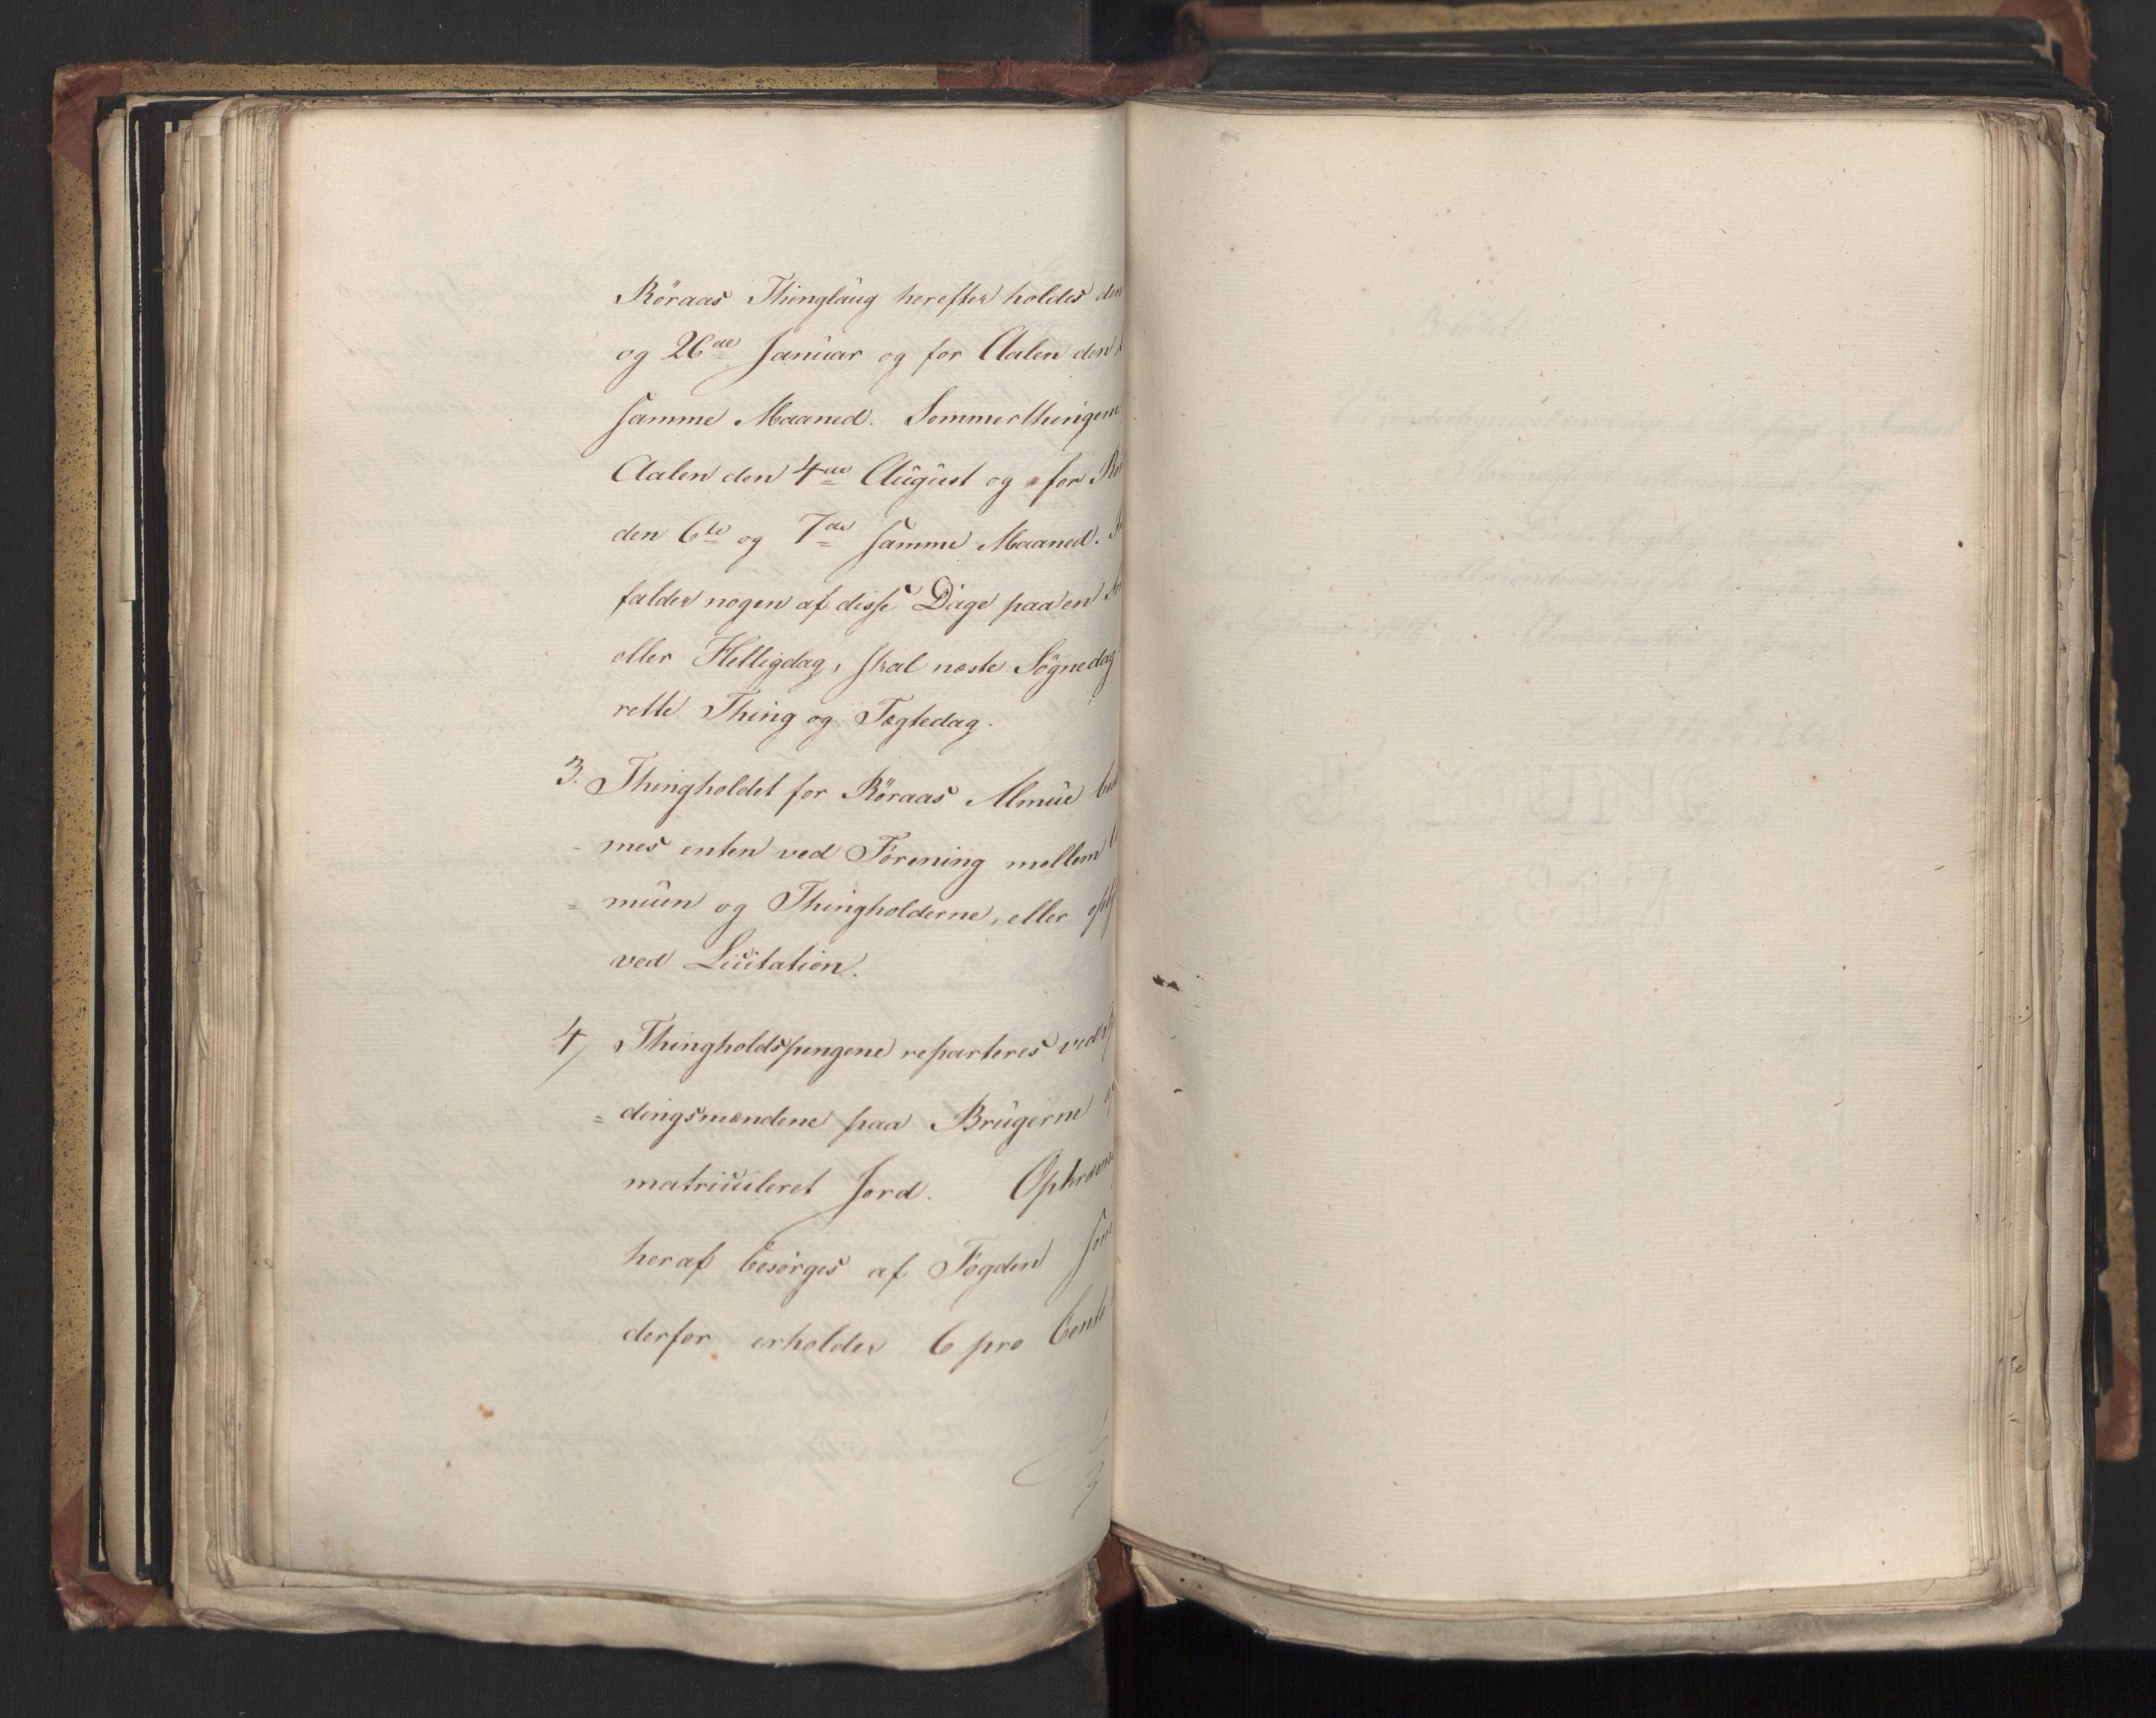 Röraas Thinglaug herefter holdes den
og 26de Januar og for Aalen den
samme Maaned. Sommerthingene
Aalen den 4de August og for Rö
den 6te og 7de samme Maaned.
falder nogen af disse Dage paa en
eller Helligdag, skal næste Søgnedag
rette Thing og Tægtedag.
3. Thingholdet for Röraas Almue
- mes enten ved Forening mellem
= muen og Thingholderne, eller
ved Licitation.
4/ Thingholdspengene reparteres ved
= dingsmændene paa Brugerne
matriculeret Jord. Opkræv
heraf besørges af Fogden som
derfor erholder 6 pro Cent